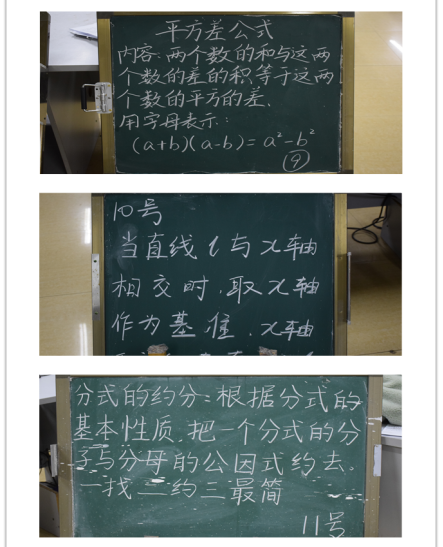 平方差公式
内容:两个数的和与这两
个数的差的积,等于这两
个数的平方的差.
用字母表示:
(a+b)(a-b)=a²-b²
⑨
10号
当直线l与x轴
相交时,取x轴
作为基准,x轴
分式的约分:根据分式的
基本性质,把一个分式的分
子与分母的公因式约去。
一找二约三最简
11号